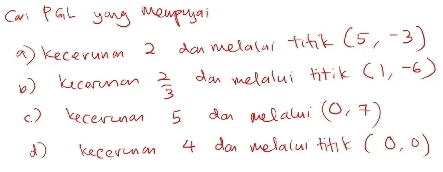 Cari PGL yang Mempunyai
a) kecerunan 2 dan melalui titik (5, -3)
b) kecerunan 2/3 dan melalui titik (1, -6)
c.) kecerunan 5 dan melalui (0, 7)
d) kecerunan 4 dan melalui titik (0,0)